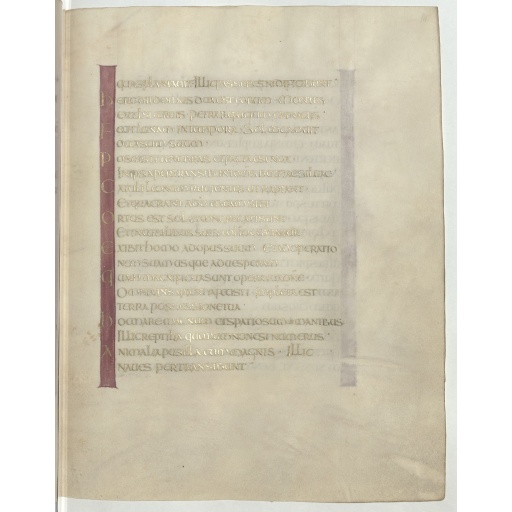 QUAS PLANTAVIT ILLIC PASSERES NIDIFICABUNT
HERODII DOMUS DUX EST EORUM MONTES
EXCELSI CERVIS PETRA REFUGIUM
FECIT LUNAM IN TEMPORA SOL COGNOVIT
OCCASUM SUUM
POSUISTI TENEBRAS ET FACTA EST NOX
IN IPSA PERTRANSIBUNT OMNES BESTIAE SILVAE
CATULI LEONUM RUGIENTES UT RAPIANT
ET QUAERANT A DO ESCAM SIBI
ORTUS EST SOL ET
ET IN CUBILIBUS SUIS
EXIBIT HOMO AD OPUS SUUM ET AD OPERATIO
NEM SUAM USQUE AD VESPERUM
QUAM MAGNIFICATA SUNT OPERA TUA DNE
OMNIA IN SAPIENTIA FECISTI IMPLETA EST
TERRA POSSESSIONE TUA
HOC MARE MAGNUM ET SPATIOSUM MANIBUS
ILLIC REPTILIA QUORUM NON EST NUMERUS
ANIMALIA PUSILLA CUM MAGNIS ILLIC
NAVES PERTRANSIBUNT